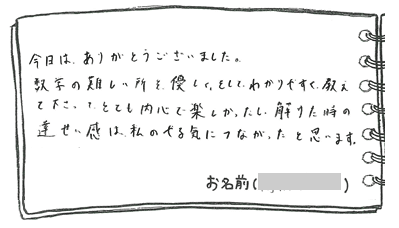 今日は、ありがとうございました。
数学の難しい所を、優しく、そして、わかりやすく、教え
て下さって、とても内心で楽しかったし、解りた時の
達せい感は、私のやる気につながったと思います。
お名前( )